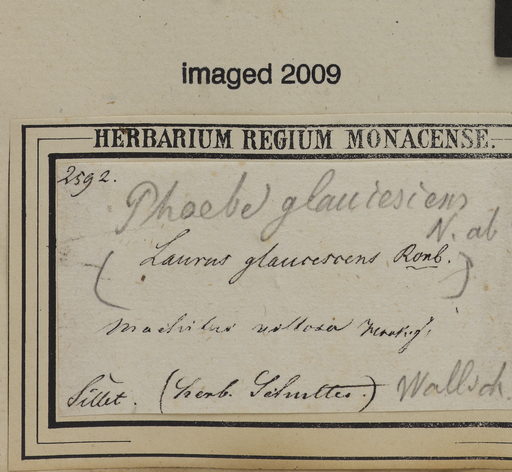 imaged 2009
HERBARIUM REGIUM MONACENSE.
2592.
Phoebe glaucescens
N. ab
(Laurus glaucescens Roxb.)
Machilus villosa Hook.f.
Sillet. (herb. Schultes.) Wallich.